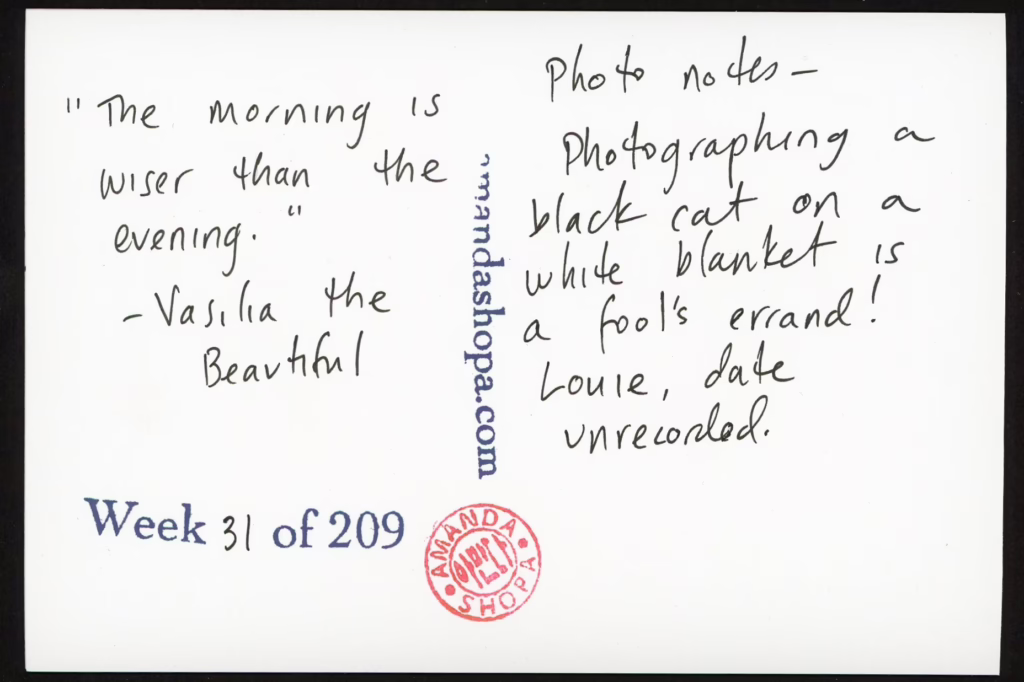 "The morning is
wiser than the
evening."
- Vasilia the
Beautiful
Week 31 of 209
amandashopa.com
AMANDA
SHOPA
Photo notes -
Photographing a
black cat on a
white blanket is
a fool's errand!
Louie, date
unrecorded.